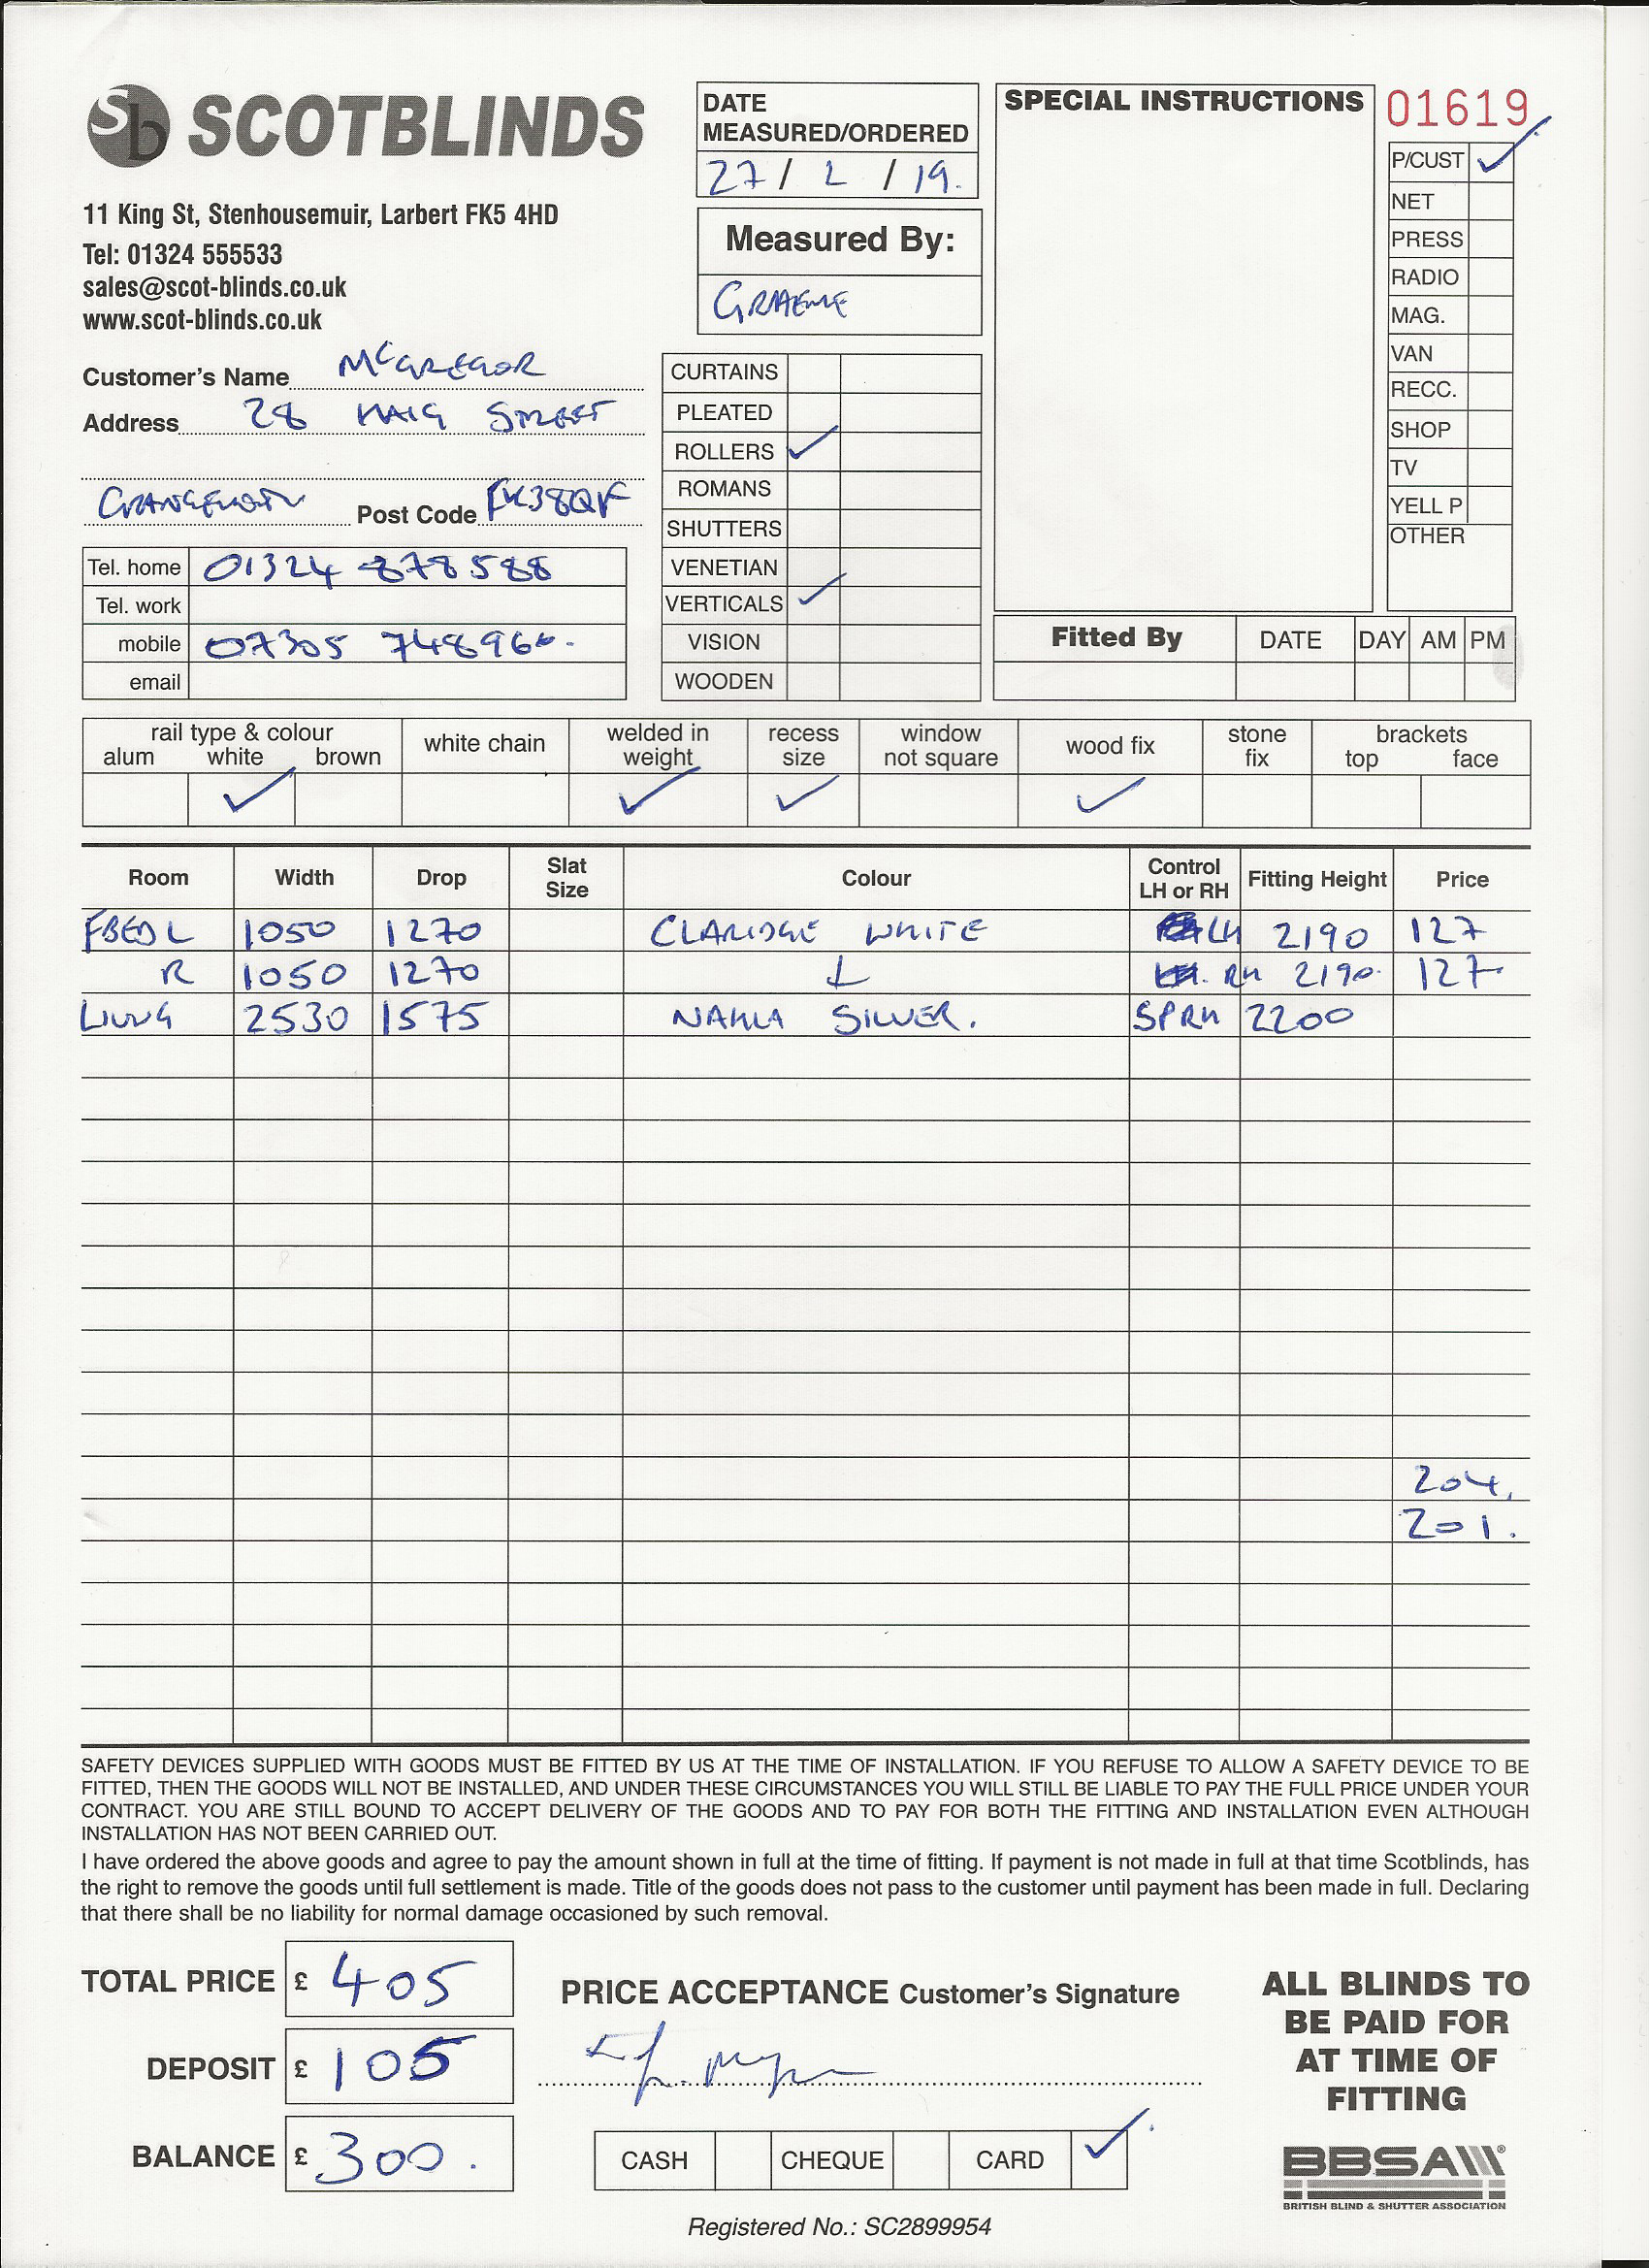 Sb SCOTBLINDS
11 King St, Stenhousemuir, Larbert FK5 4HD
Tel: 01324 555533
sales@scot-blinds.co.uk
www.scot-blinds.co.uk
DATE
MEASURED/ORDERED
27 / 2 / 19.
Measured By:
GRAEME
SPECIAL INSTRUCTIONS
01619
P/CUST ✓
NET
PRESS
RADIO
MAG.
VAN
RECC.
SHOP
TV
YELL P
OTHER
Customer's Name McGREGOR
Address 28 HAIG STREET
GRANGEMOUTH Post Code FK38QF
Tel. home 01324 878588
Tel. work
mobile 07305 748966.
email
CURTAINS
PLEATED
ROLLERS ✓
ROMANS
SHUTTERS
VENETIAN
VERTICALS ✓
VISION
WOODEN
Fitted By DATE DAY AM PM
rail type & colour
alum white brown
white chain
welded in
weight
recess
size
window
not square
wood fix
stone
fix
brackets
top face
✓ ✓ ✓ ✓
Room Width Drop Slat Size Colour Control LH or RH Fitting Height Price
FBED L 1050 1270 CLARIDGE WHITE LH 2190 127
R 1050 1270 ↓ RH 2190. 127
LIVING 2530 1575 NAHLA SILVER. SPRH 2200
204.
201.
SAFETY DEVICES SUPPLIED WITH GOODS MUST BE FITTED BY US AT THE TIME OF INSTALLATION. IF YOU REFUSE TO ALLOW A SAFETY DEVICE TO BE
FITTED, THEN THE GOODS WILL NOT BE INSTALLED, AND UNDER THESE CIRCUMSTANCES YOU WILL STILL BE LIABLE TO PAY THE FULL PRICE UNDER YOUR
CONTRACT. YOU ARE STILL BOUND TO ACCEPT DELIVERY OF THE GOODS AND TO PAY FOR BOTH THE FITTING AND INSTALLATION EVEN ALTHOUGH
INSTALLATION HAS NOT BEEN CARRIED OUT.
I have ordered the above goods and agree to pay the amount shown in full at the time of fitting. If payment is not made in full at that time Scotblinds, has
the right to remove the goods until full settlement is made. Title of the goods does not pass to the customer until payment has been made in full. Declaring
that there shall be no liability for normal damage occasioned by such removal.
TOTAL PRICE £ 405
DEPOSIT £ 105
BALANCE £ 300.
PRICE ACCEPTANCE Customer's Signature
CASH CHEQUE CARD ✓
ALL BLINDS TO
BE PAID FOR
AT TIME OF
FITTING
BBSA®
BRITISH BLIND & SHUTTER ASSOCIATION
Registered No.: SC2899954